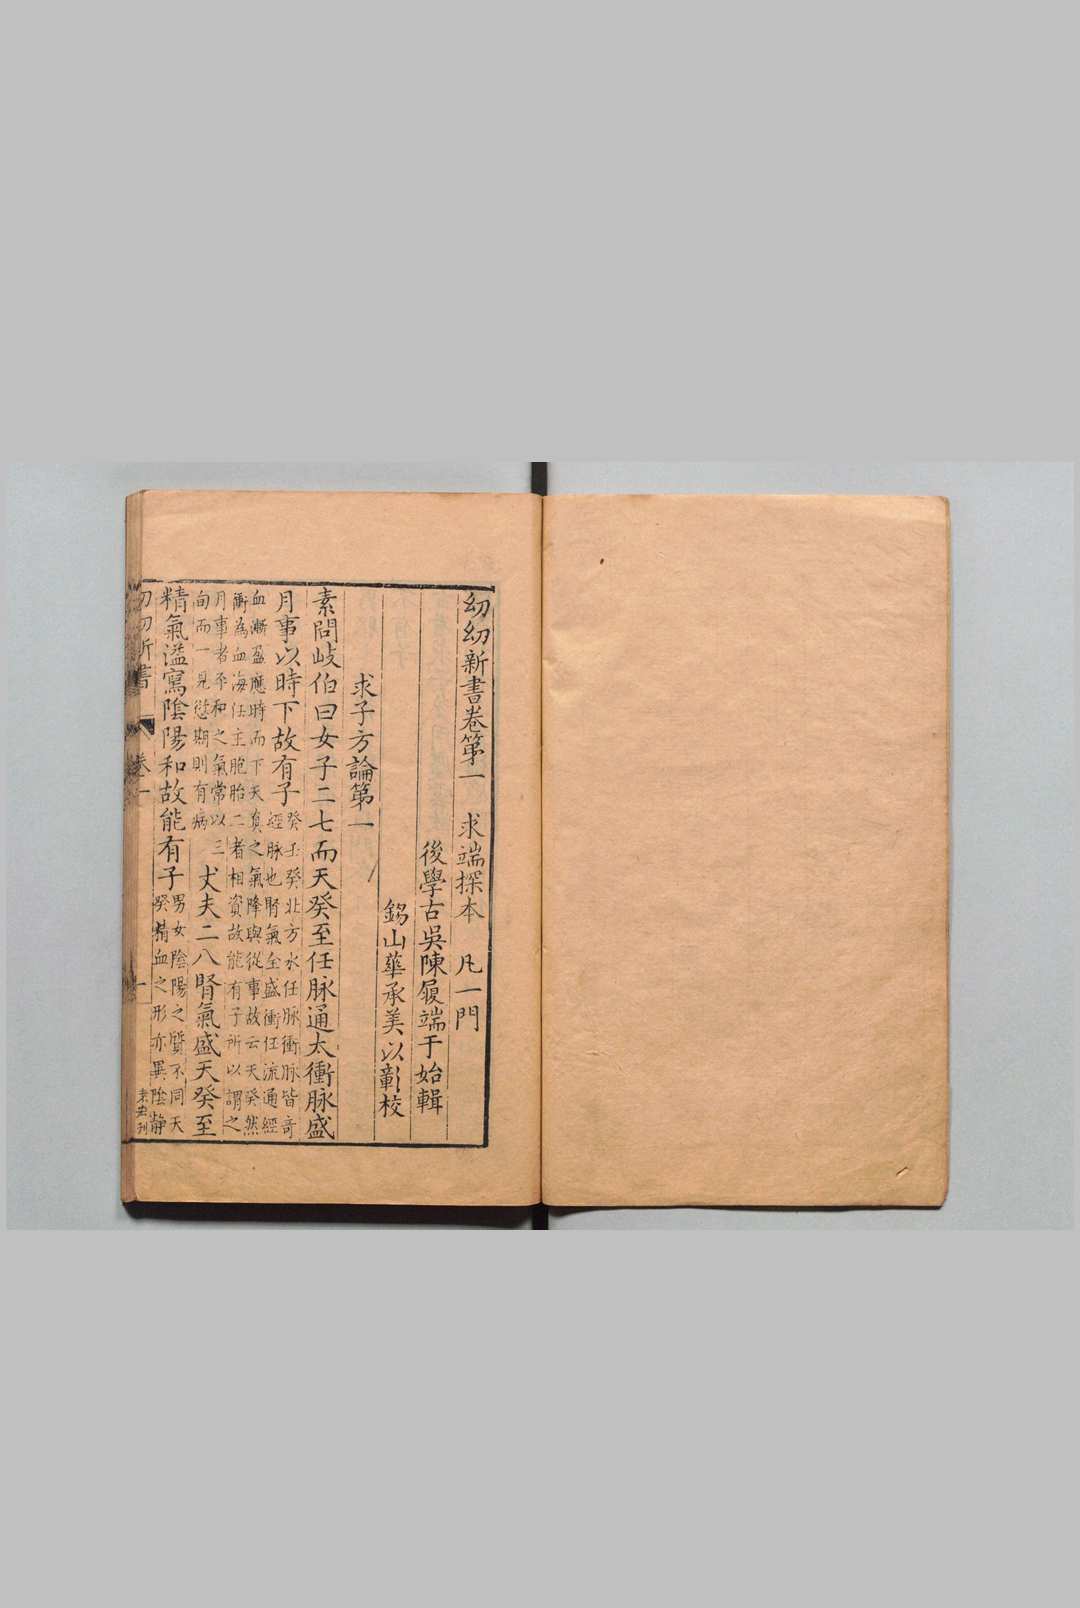 幼幼新書卷第一　求端探本　凡一門
後學古吳陳履端于始輯
錫山華承美以彰校
求子方論第一
素問岐伯曰女子二七而天癸至任脉通太衝脉盛
月事以時下故有子
癸壬癸北方水任脉衝脉皆奇
經脉也腎氣全盛衝任流通經
血漸盈應時而下天真之氣降與從事故云天癸然
衝為血海任主胞胎二者相資故能有子所以謂之
月事者平和之氣常以三
旬而一見愆期則有病
丈夫二八腎氣盛天癸至
精氣溢寫陰陽和故能有子
男女陰陽之質不同天
癸精血之形亦異陰靜
幼幼新書　卷一　一